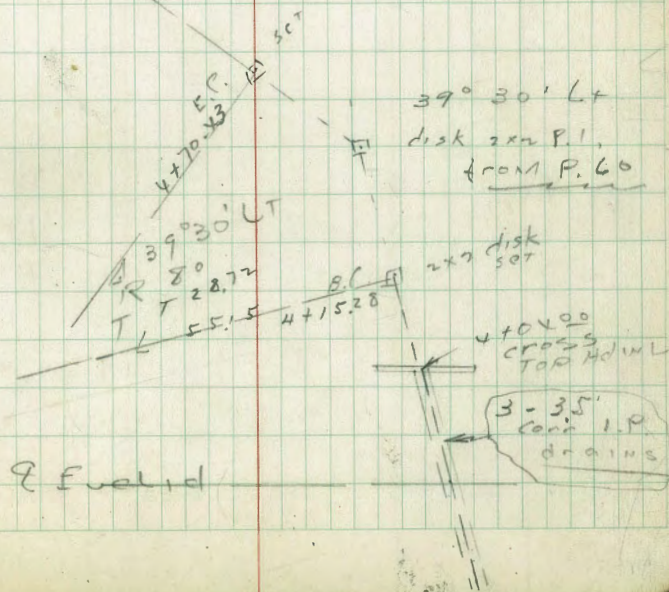 SET
E.C.
4+70.43
39° 30' Lt
disk 2x2 P.I.
from P. 60
Δ 39°30' LT
R 8°
T 28.72
L 55.15
B.C.
4+15.28
2x2 disk
set
4+04.00
cross
TOP Hdwl
3 - 35'
Corr I.P.
drains
℄ Euclid